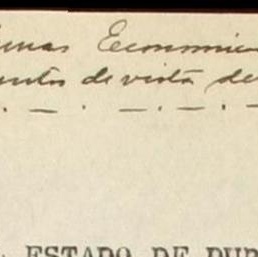 emas Economic
untos de vista de
ESTADO DE PUR